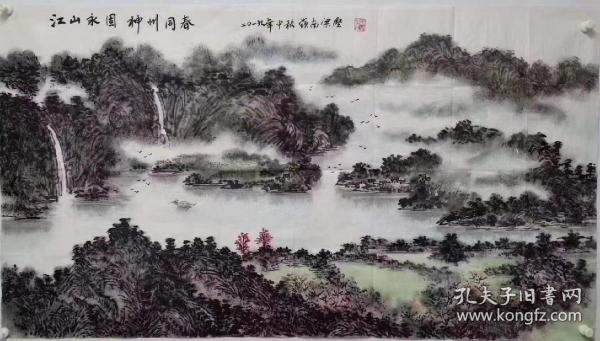 江山永固 神州同春
二〇一九年中秋 岭南梁坚
孔夫子旧书网
www.kongfz.com